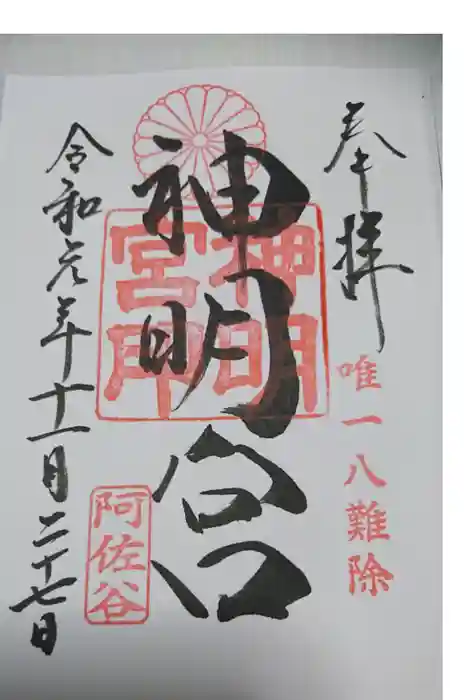 奉拝
唯一八難除
神明宮
神明宮印
令和元年十一月二十七日
阿佐谷